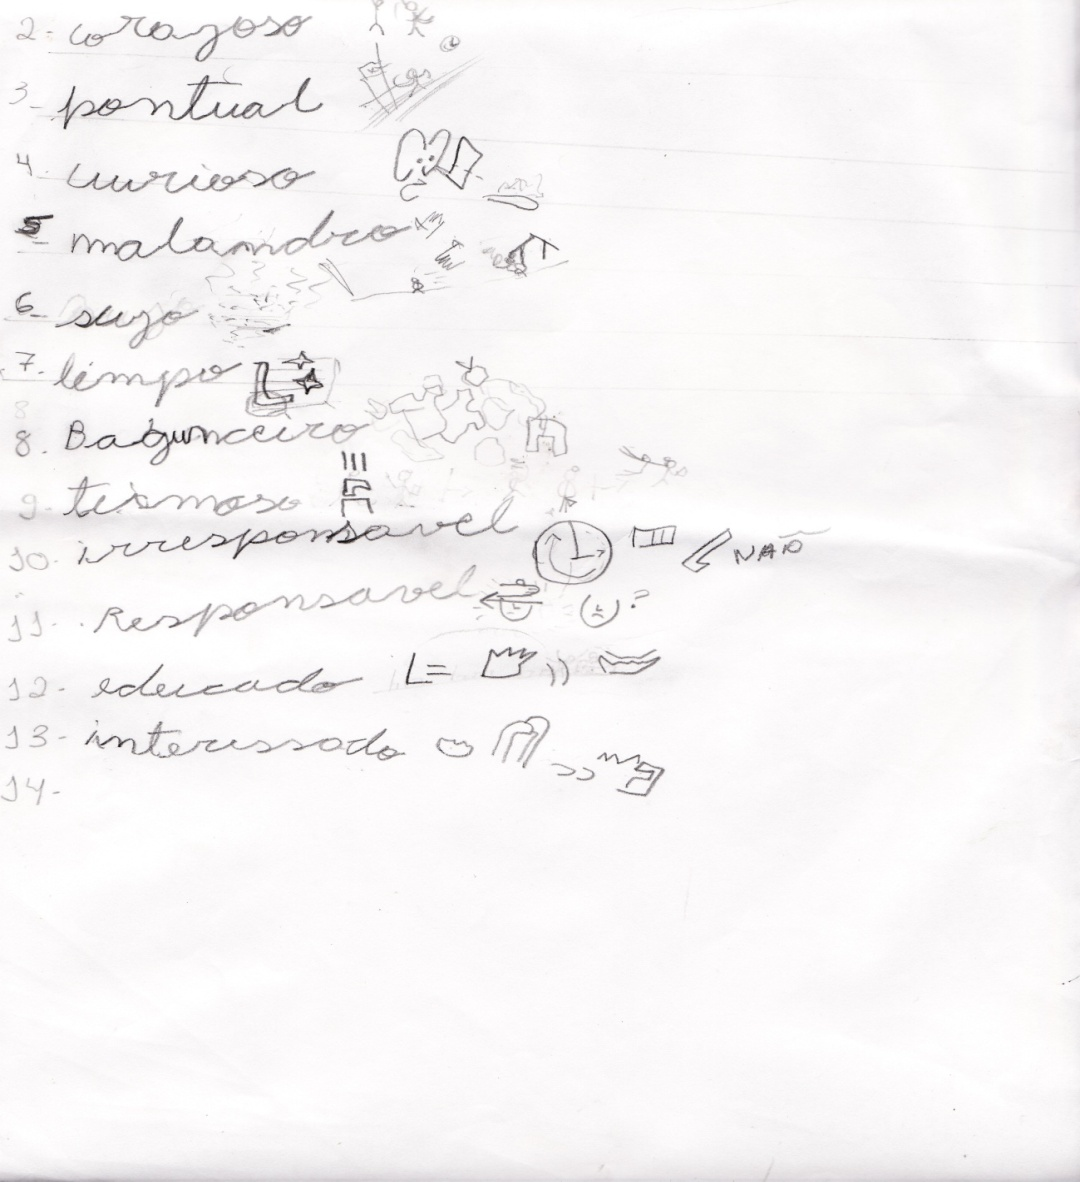 2- corazoso
3- pontual
4- curioso
5- malandro
6- sujo
7- limpo
8
8. Bagunceiro
9- teismoso
10- irresponsavel NÃO
11- Responsavel ?
12- educado L=
13- interessado
14-